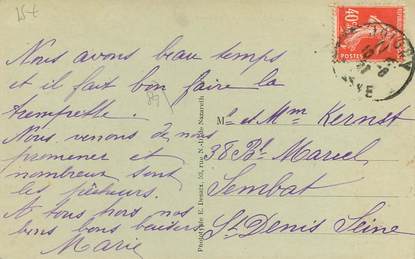 15 €
Nous avons beau temps
et il fait bon faire la
trempette.
Nous venons de nous
promener et
nombreux sont
les pêcheurs.
A tous trois nos
bons bons baisers
Marie
Phototypie E. Desaix, 33, rue N.-D. de Nazareth
Mr et Mme Kernst
38 Bd Marcel
Sembat
St Denis Seine
40c
POSTES